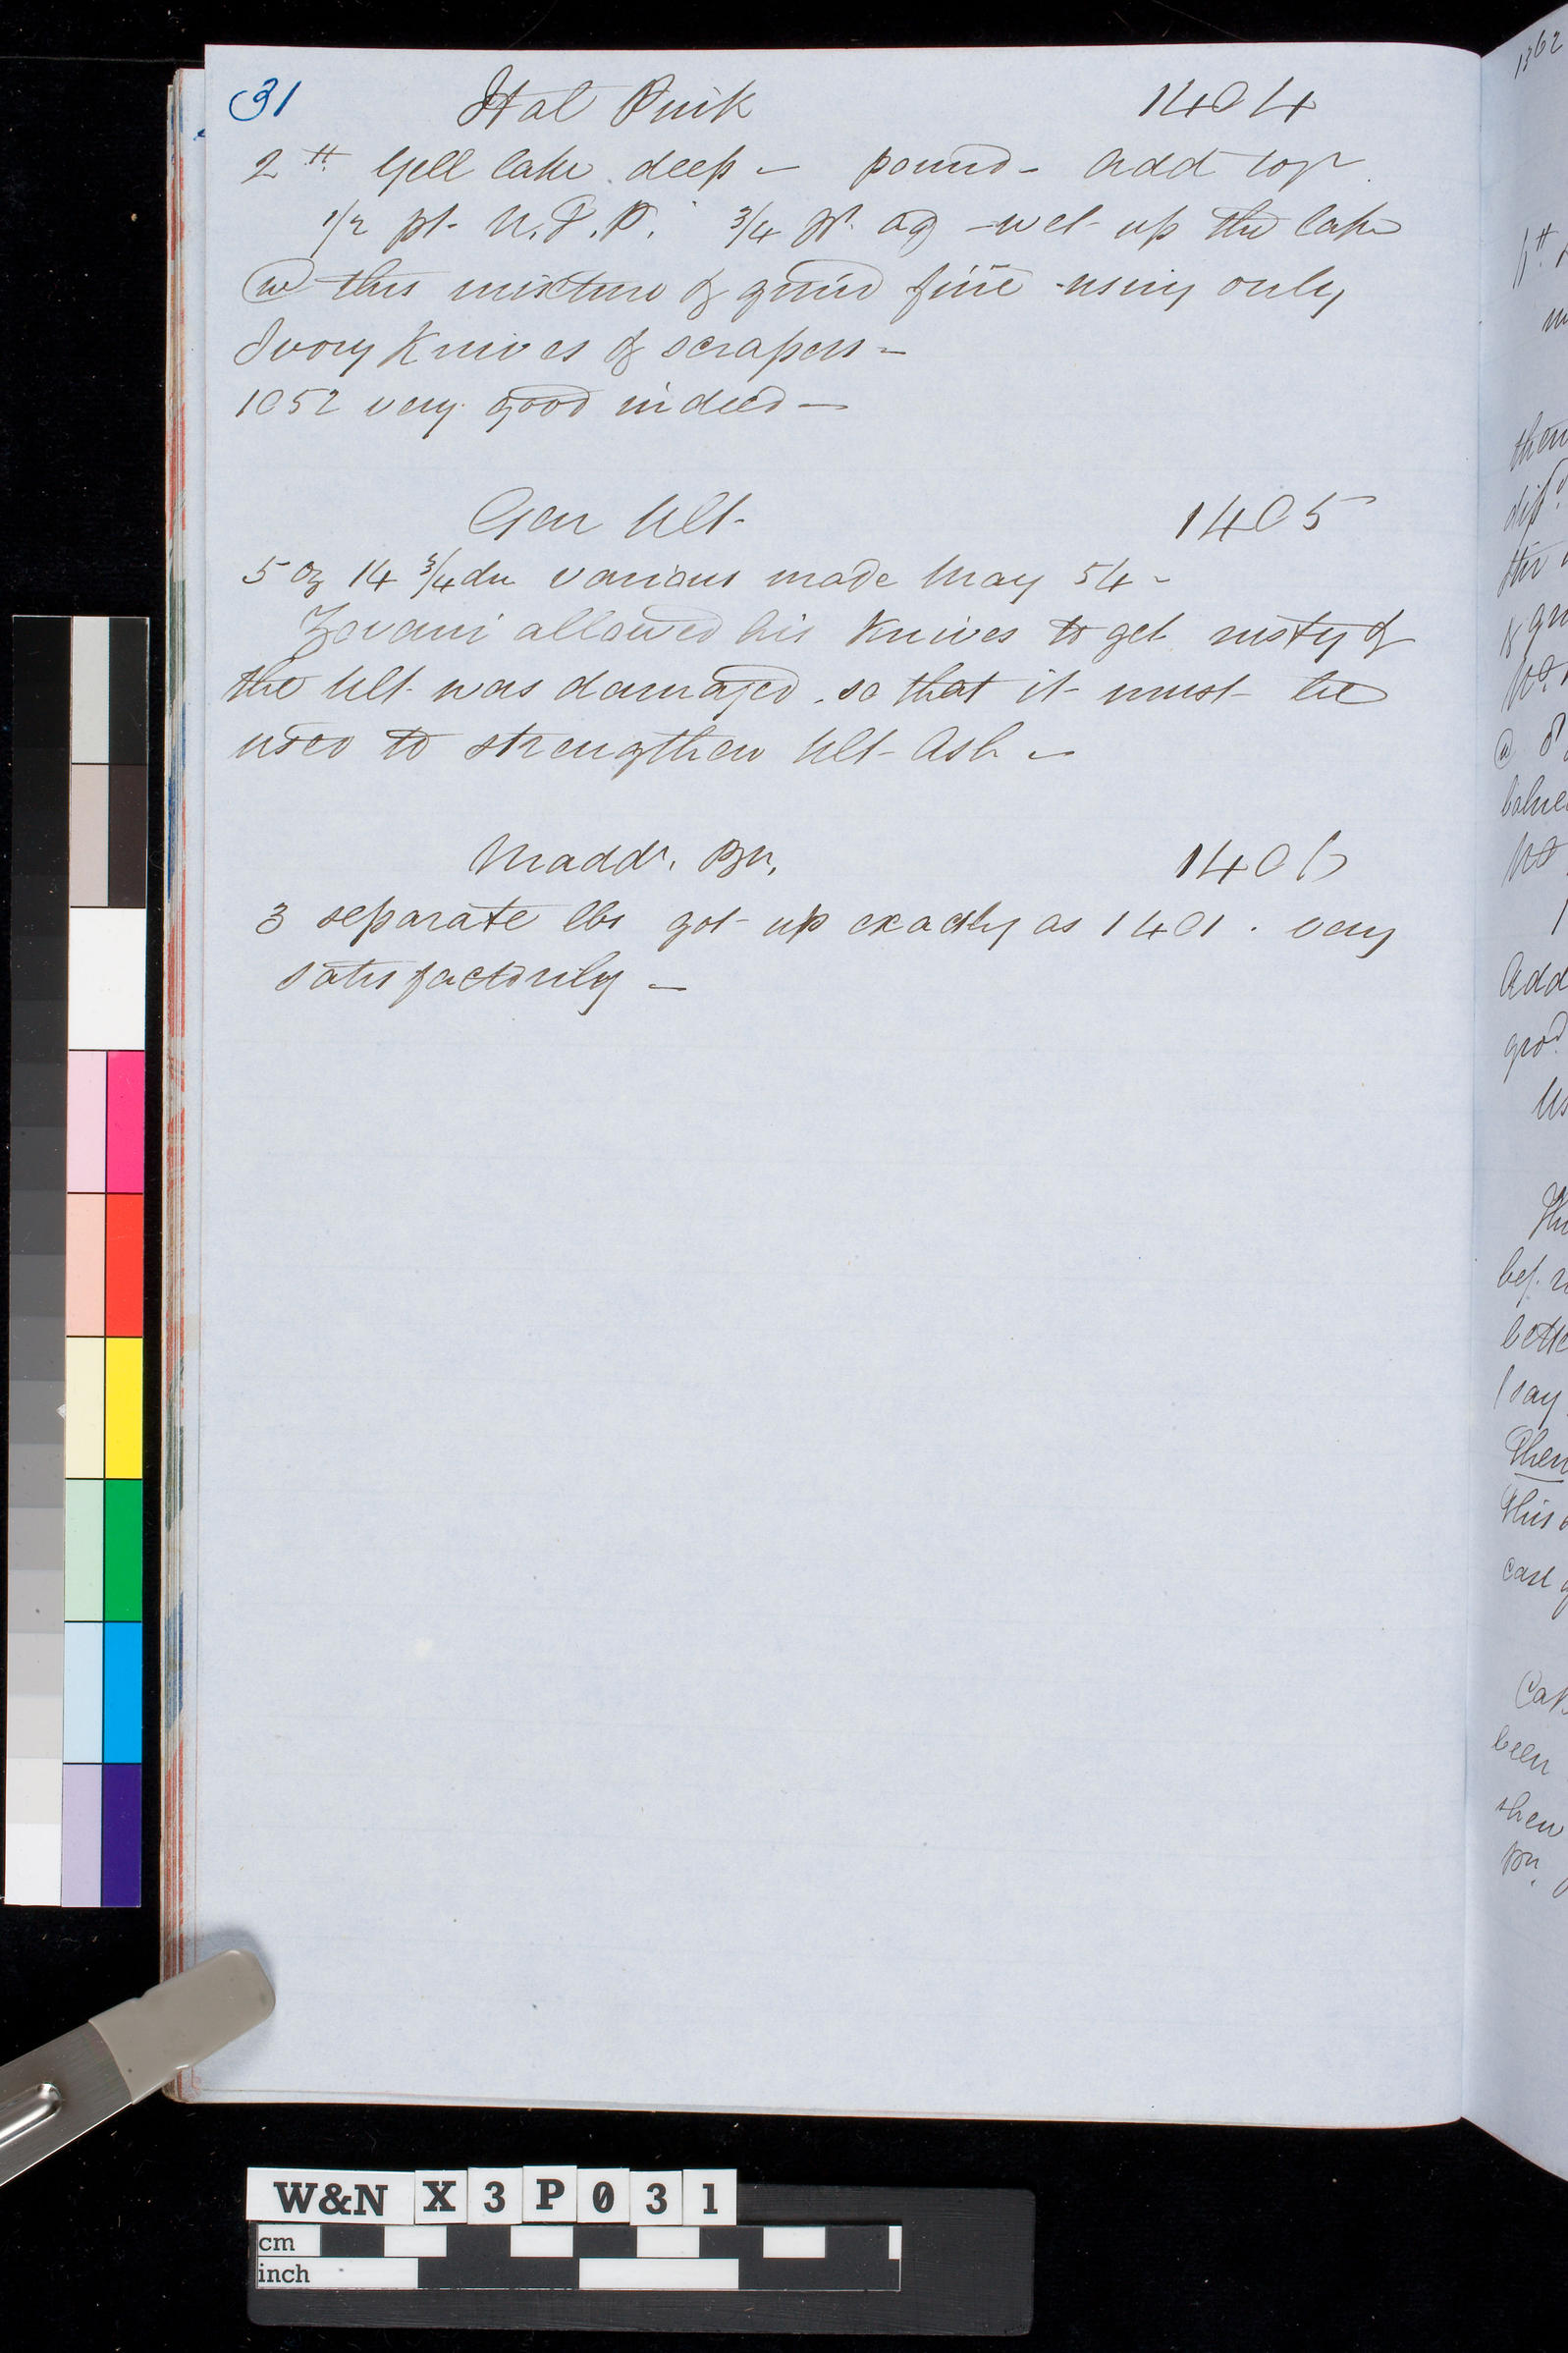 31 Ital Pink 1404
2 lb Yell lake deep – pound – add
1/2 pt. N.P.P. 3/4 pt. aq – wet up the lake
w this mixture & grind fine using only
Ivory Knives & scrapers –
1052 very good indeed –
Gen Ult. 1405
5 oz 14 3/4 dr various made May 54 –
Zovani allowed his Knives to get rusty &
the Ult. was damaged. so that it must be
used to strengthen Ult. Ash –
Maddr. Bn. 1406
3 separate lbs got up exactly as 1401. very
satisfactorily –
W&N X 3 P 0 3 1
cm
inch
1362
them
Add
good
Then
this
been
shew
Bn.